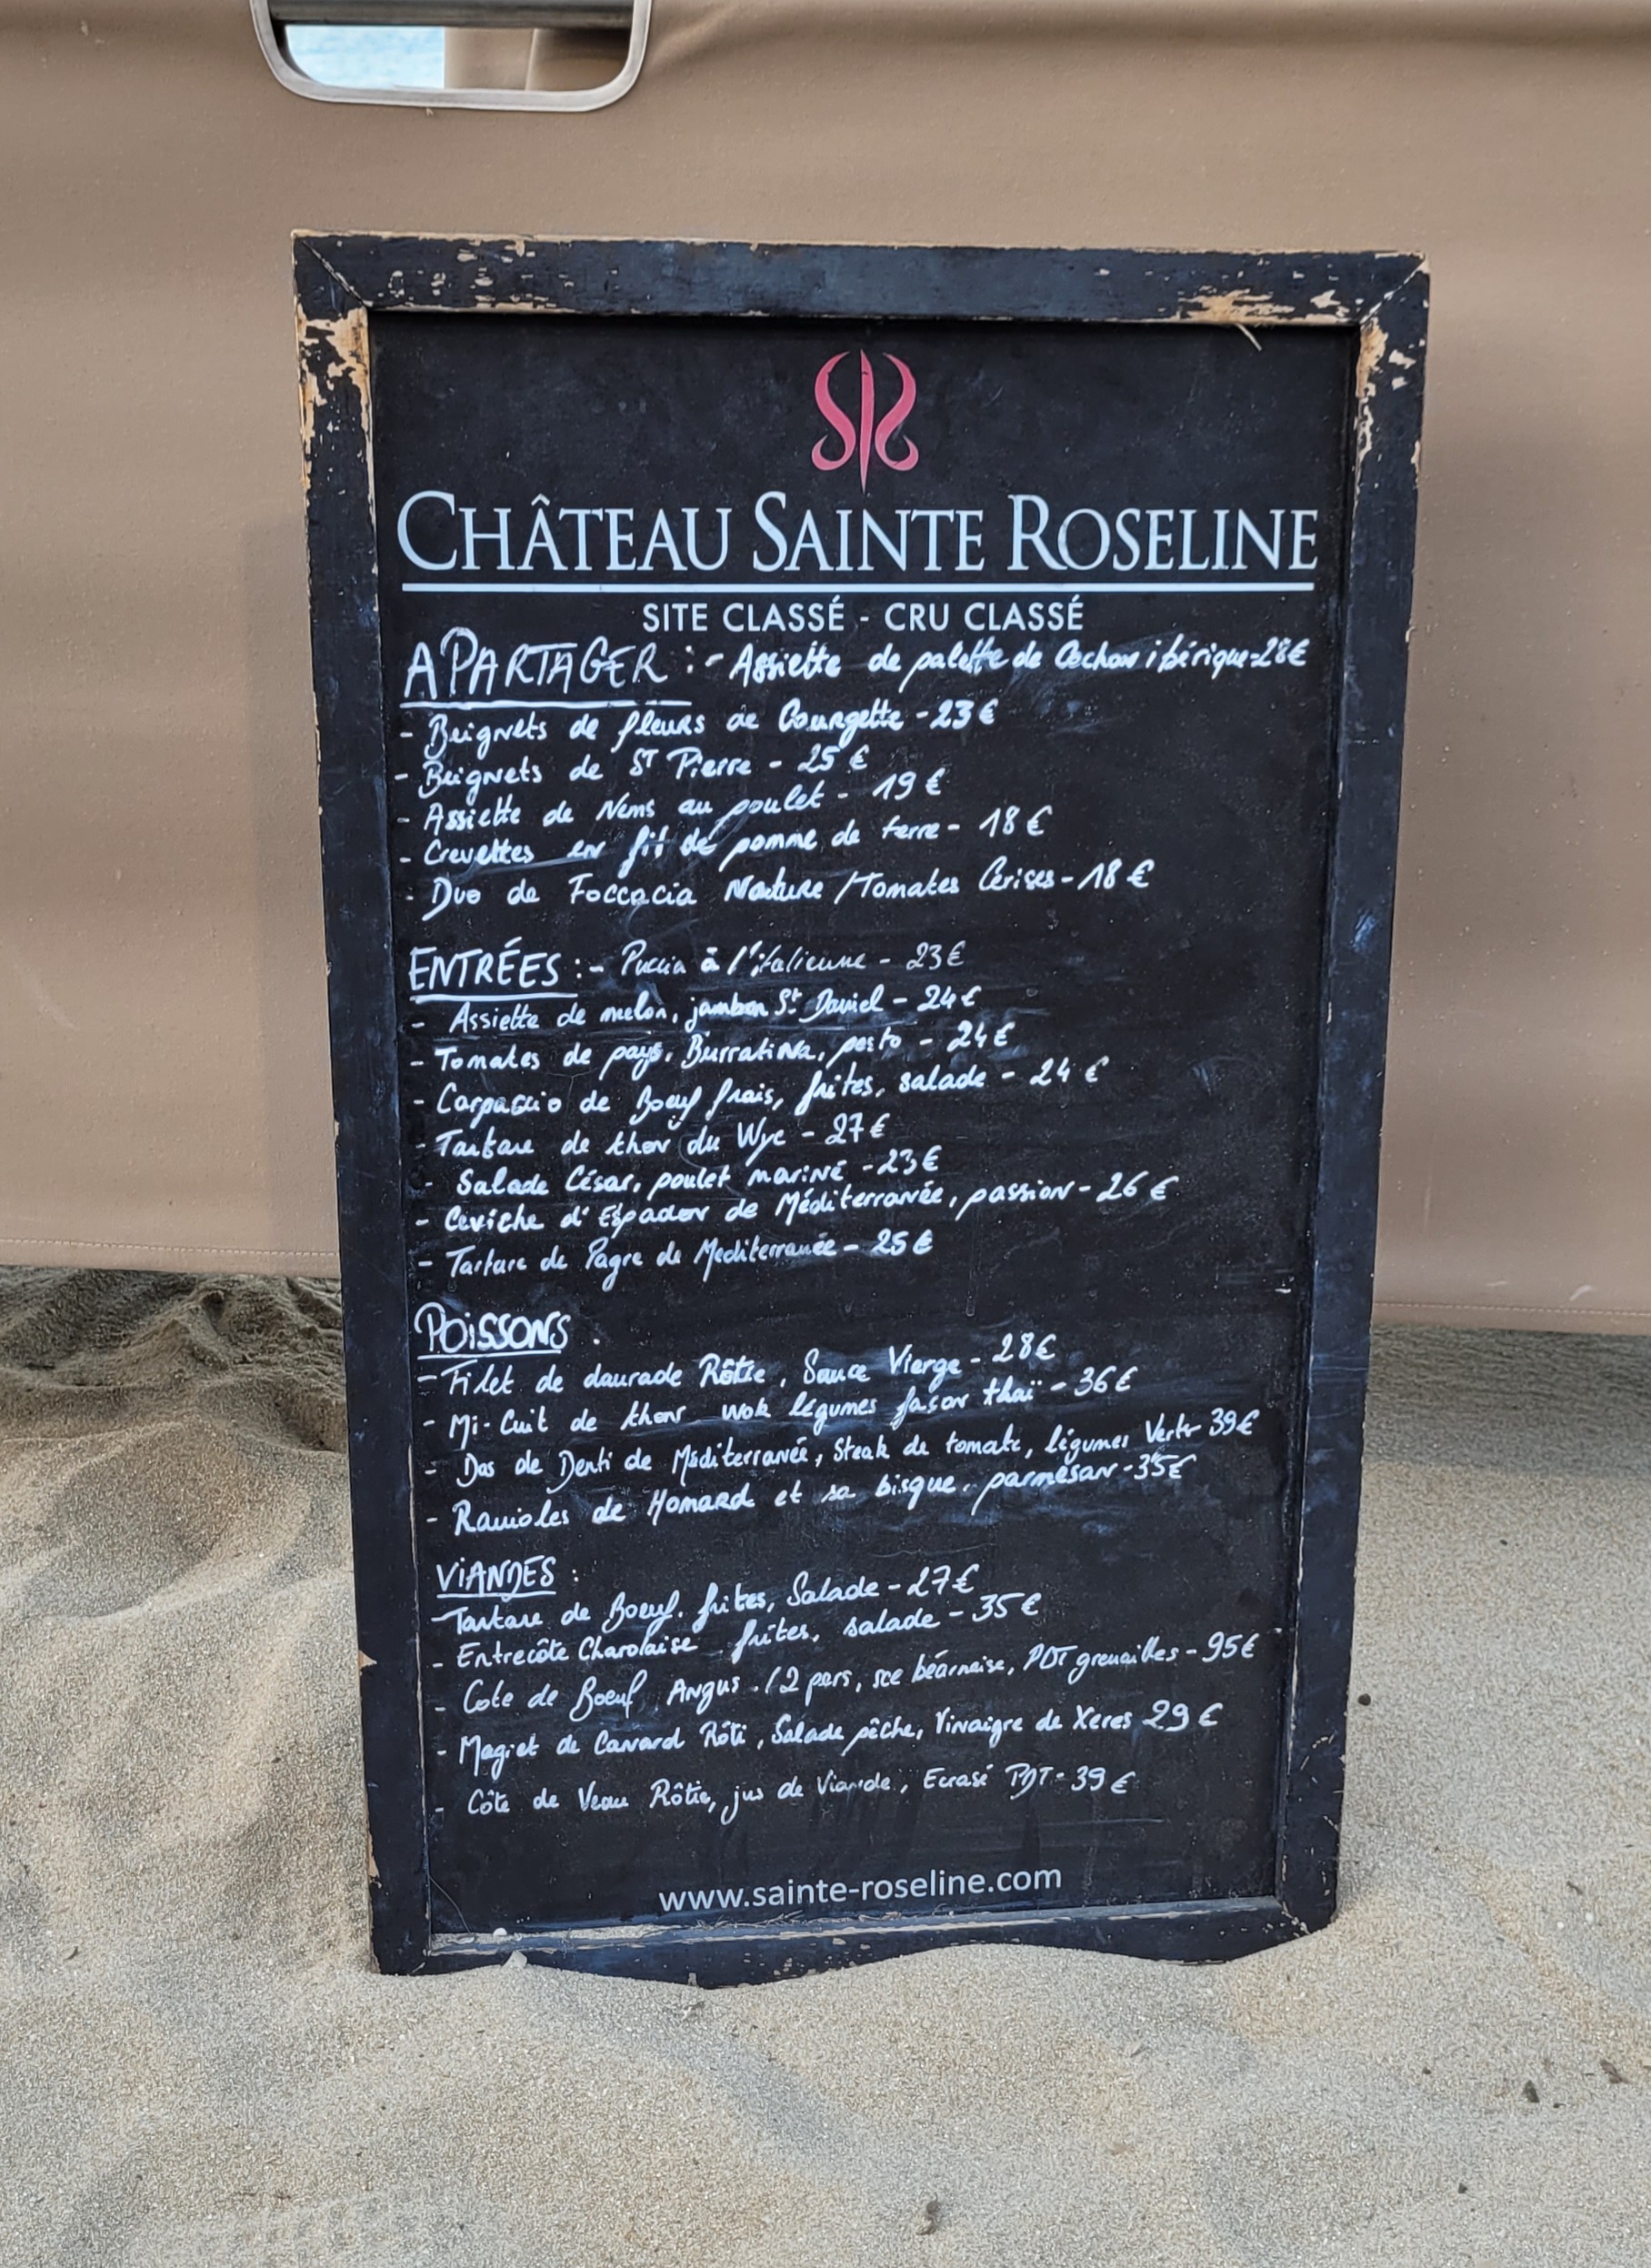 CHÂTEAU SAINTE ROSELINE
SITE CLASSÉ - CRU CLASSÉ
A PARTAGER : - Assiette de palette de Cochon ibérique - 28€
- Beignets de fleurs de Courgette - 23 €
- Beignets de ST Pierre - 25 €
- Assiette de Nems au poulet - 19 €
- Crevettes en fit de pomme de terre - 18 €
- Duo de Foccacia Nature / Tomates Cerises - 18 €
ENTRÉES : - Puccia à l'italienne - 23€
- Assiette de melon, jambon St Daniel - 24€
- Tomates de pays, Burratina, pesto - 24€
- Carpaccio de Boeuf frais, frites, salade - 24 €
- Tartare de thon du Wyc - 27€
- Salade César, poulet mariné - 23€
- Ceviche d'Espadon de Méditerranée, passion - 26 €
- Tartare de Pagre de Mediterranée - 25€
POISSONS.
- Filet de daurade Rôtie, Sauce Vierge - 28€
- Mi-Cuit de thon wok légumes façon thaï - 36€
- Dos de Denti de Méditerranée, Steak de tomate, légumes Verts 39€
- Ravioles de Homard et sa bisque, parmesan - 35€
VIANDES :
- Tartare de Boeuf, frites, Salade - 27€
- Entrecôte Charolaise frites, salade - 35€
- Cote de Boeuf Angus . / 2 pers, sce béarnaise, PDT grenailles - 95€
- Magret de Canard Rôti, Salade pêche, Vinaigre de Xeres 29 €
- Côte de Veau Rôtie, jus de Viande, Ecrasé PDT - 39 €
www.sainte-roseline.com